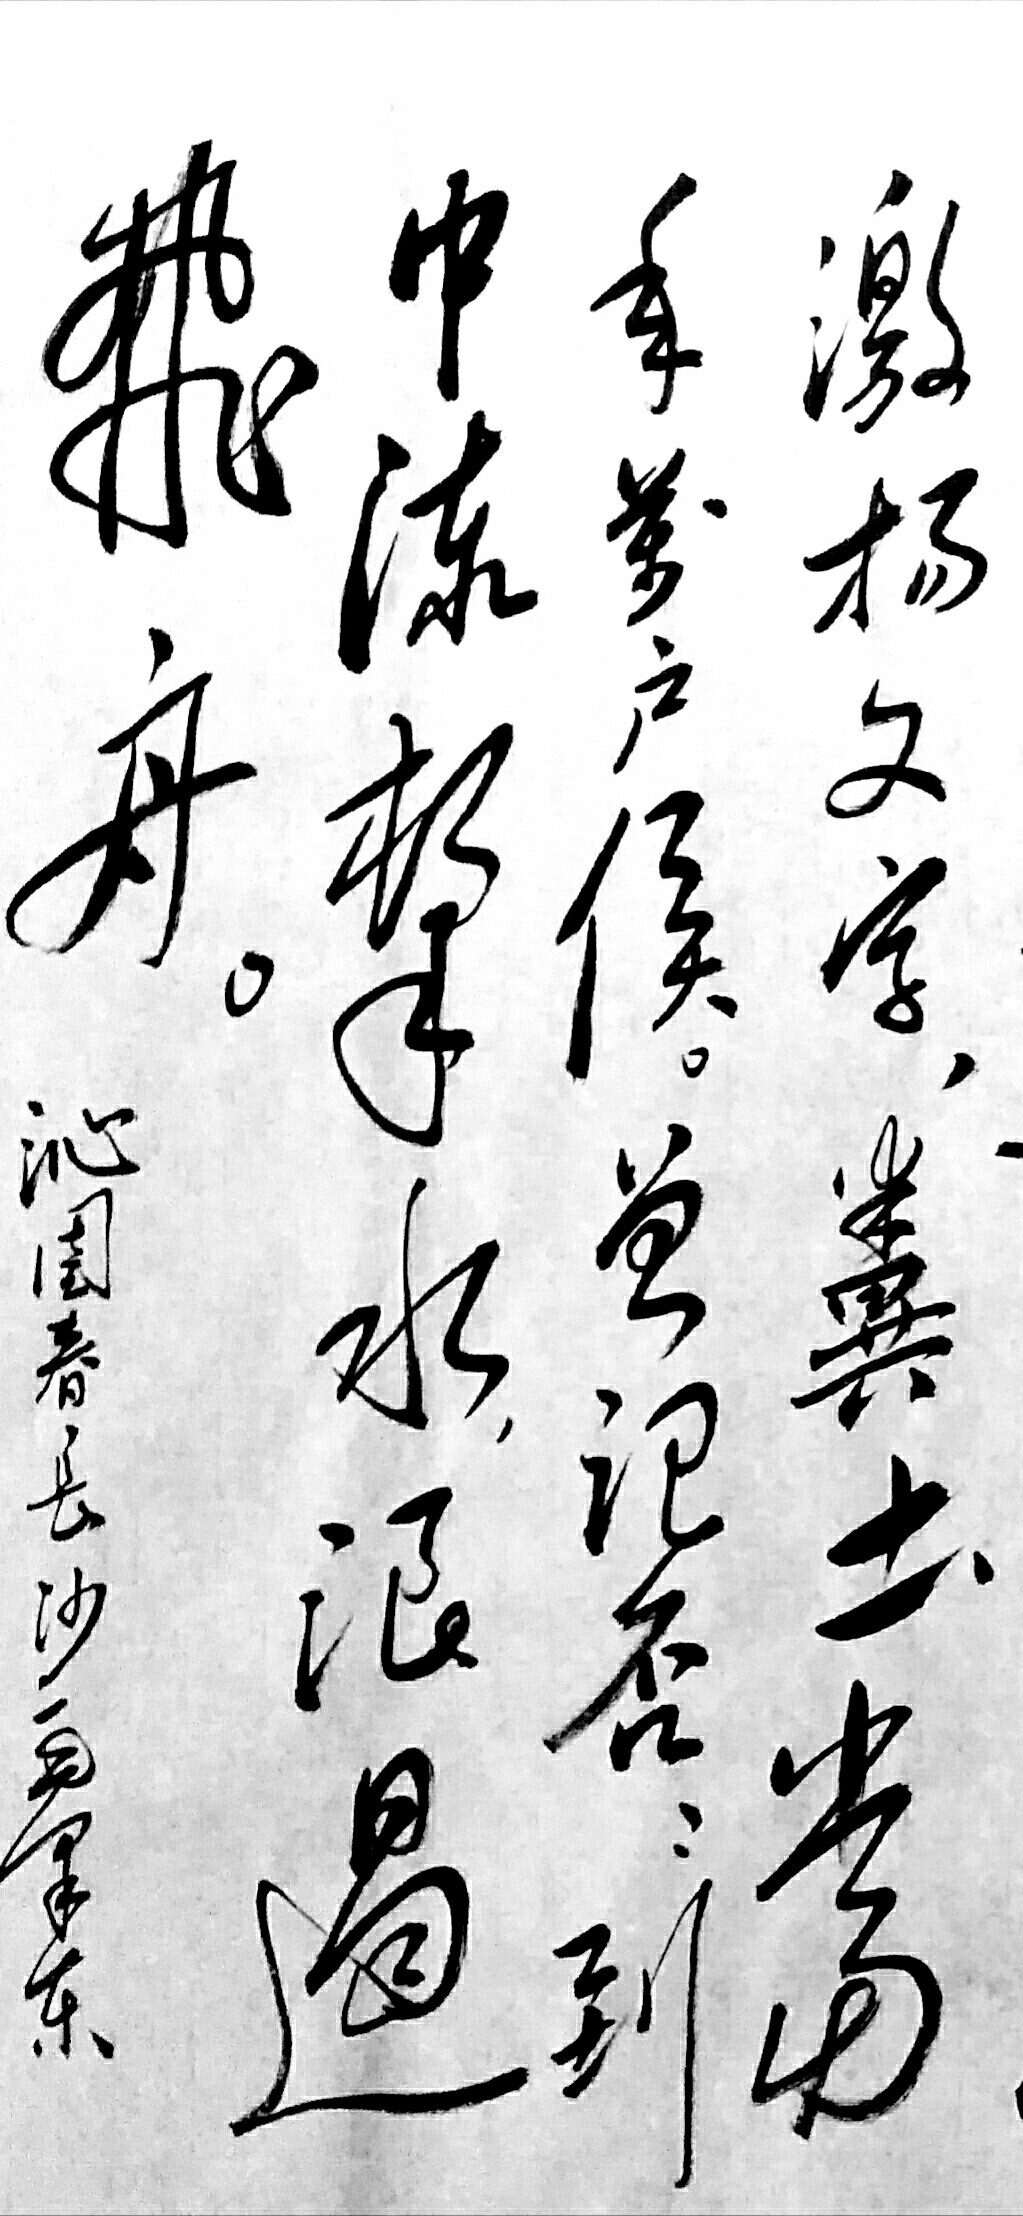 激扬文字，粪土当
年万户侯。曾记否，到
中流击水，浪遏
飞舟。
沁园春长沙 毛泽东